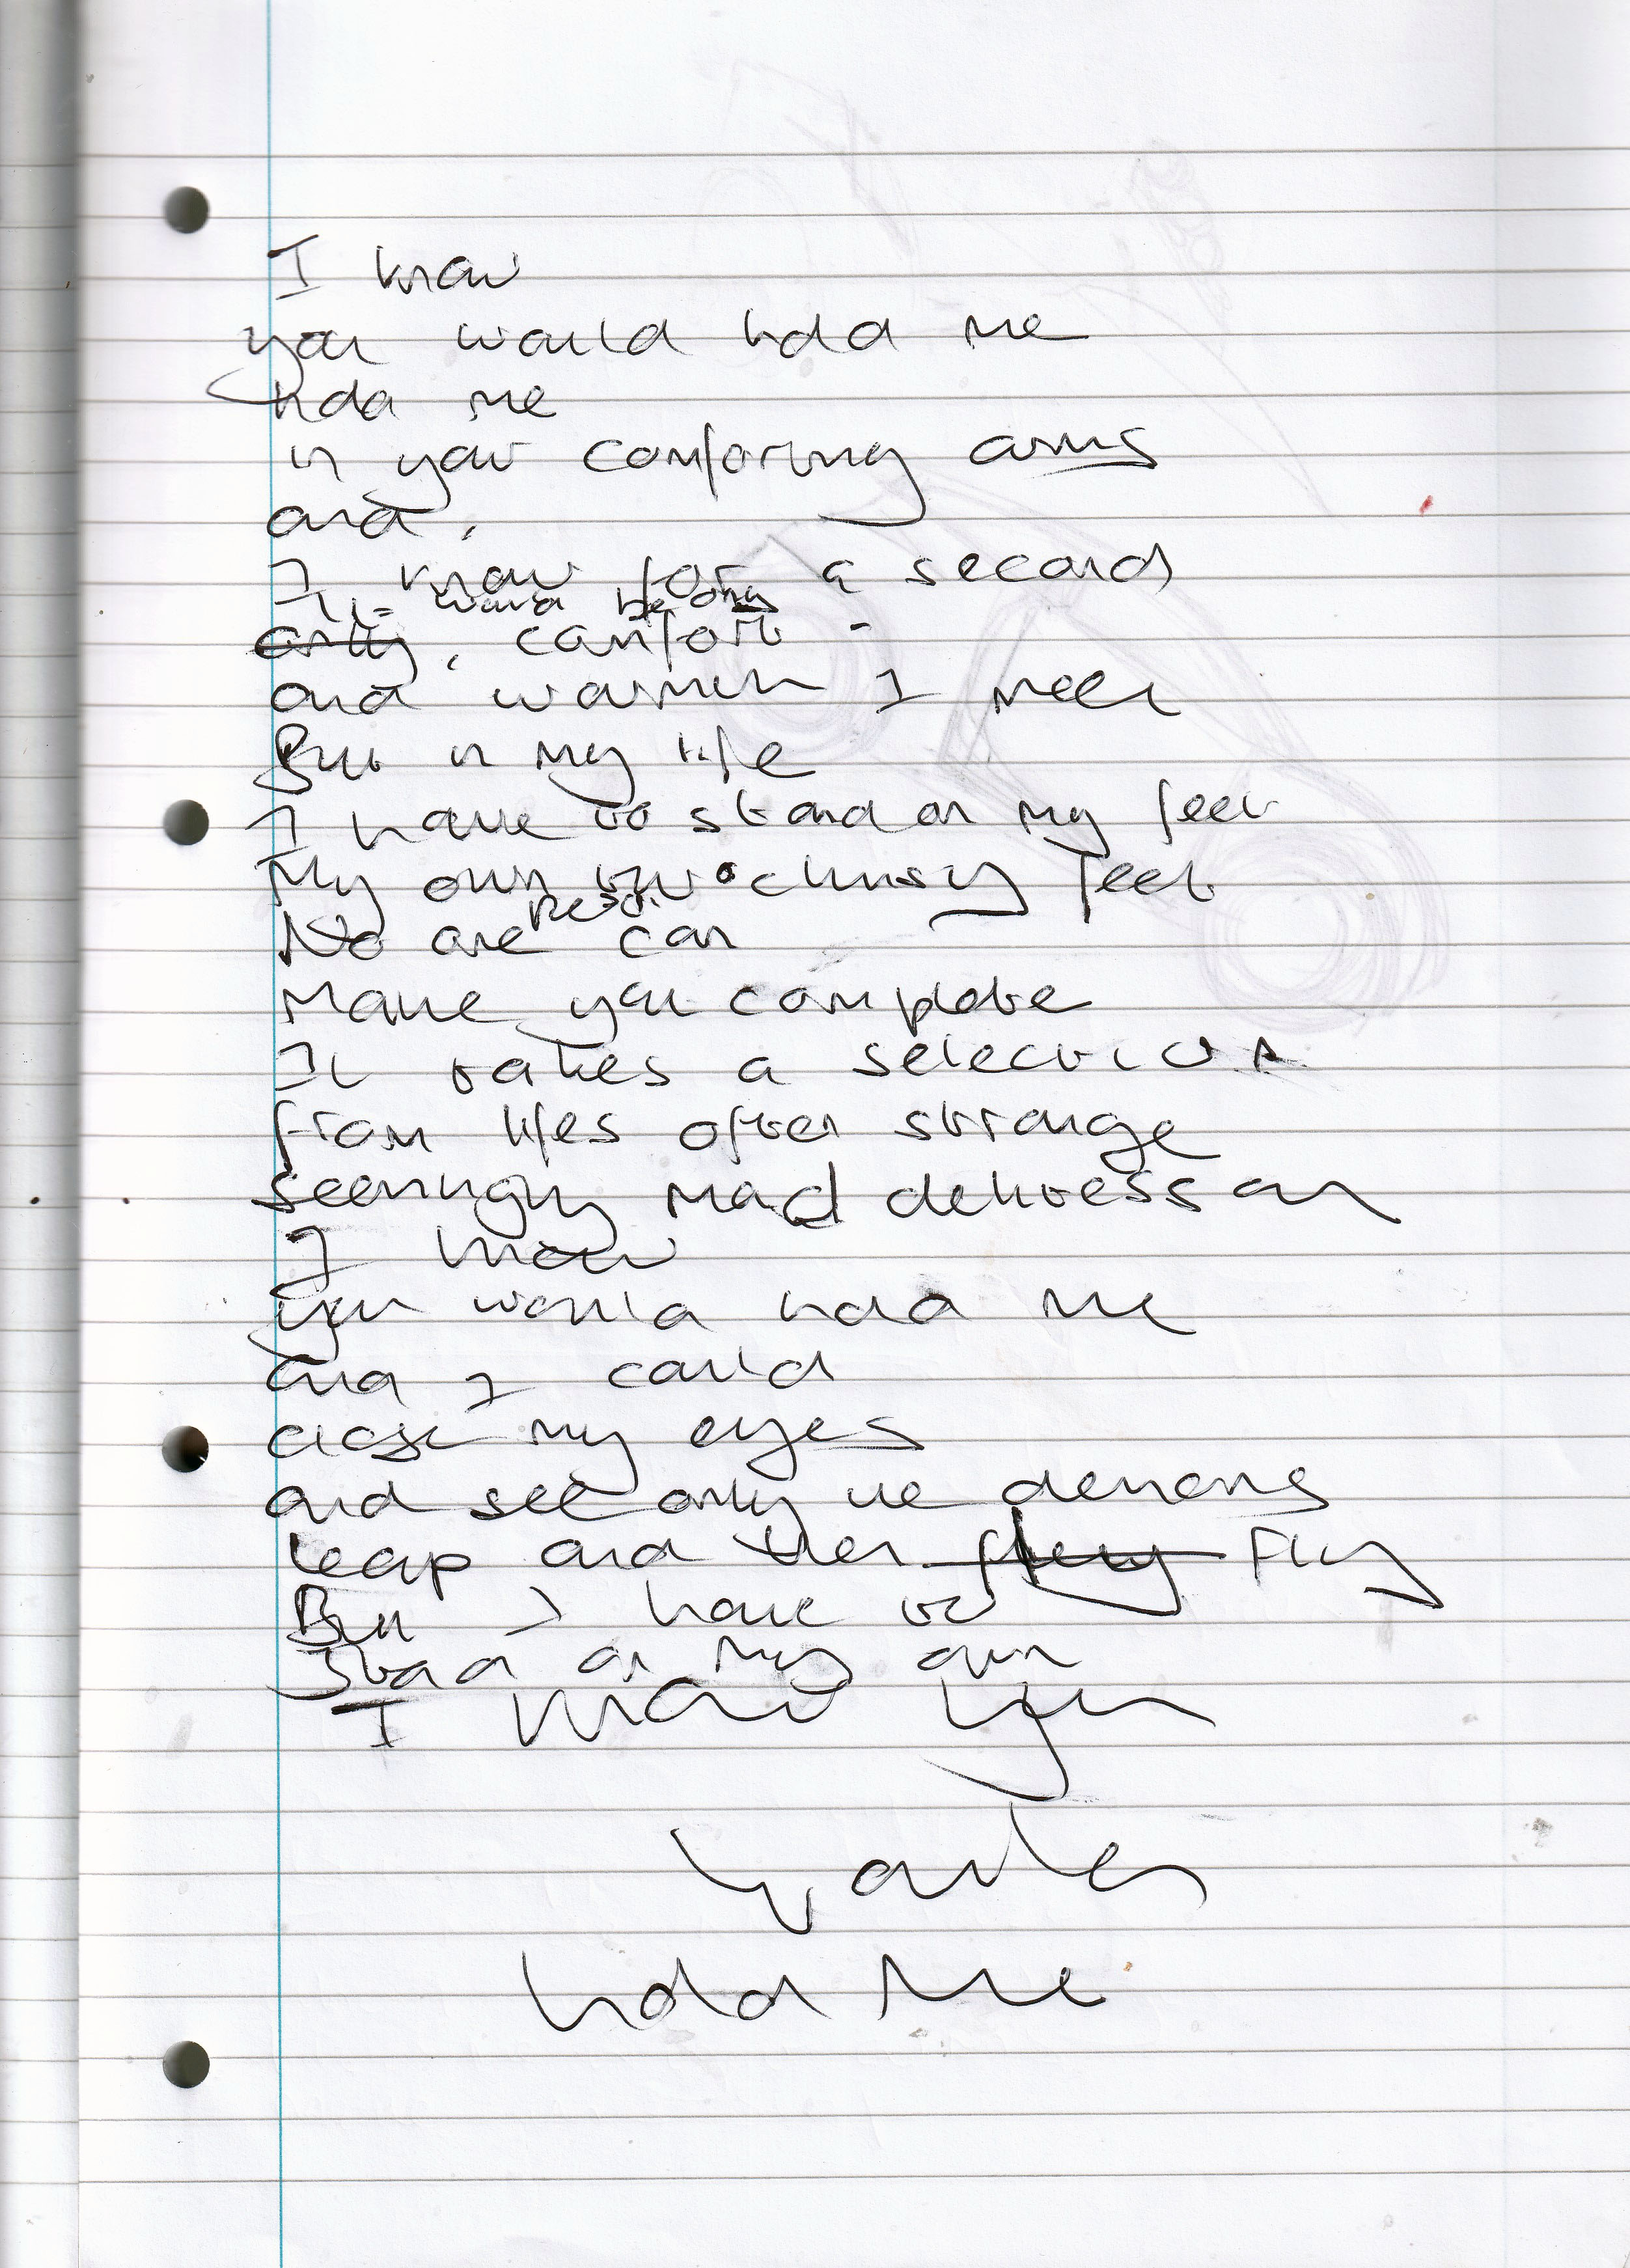 I know
you would hold me
hold me
in your comforing arms
and,
I know for a second
It would be only
only, comfort -
and warmth I meet
But in my life
I have to stand on my feet
My own two clumsy feet
No one person can
Make you complete
It takes a selection
from lifes often strange
seemingly mad delicatessan
I know
you would hold me
and I could
close my eyes
and see only the demons
leap and then fly
But I have to
Stand on my own
I know you
would
hold me